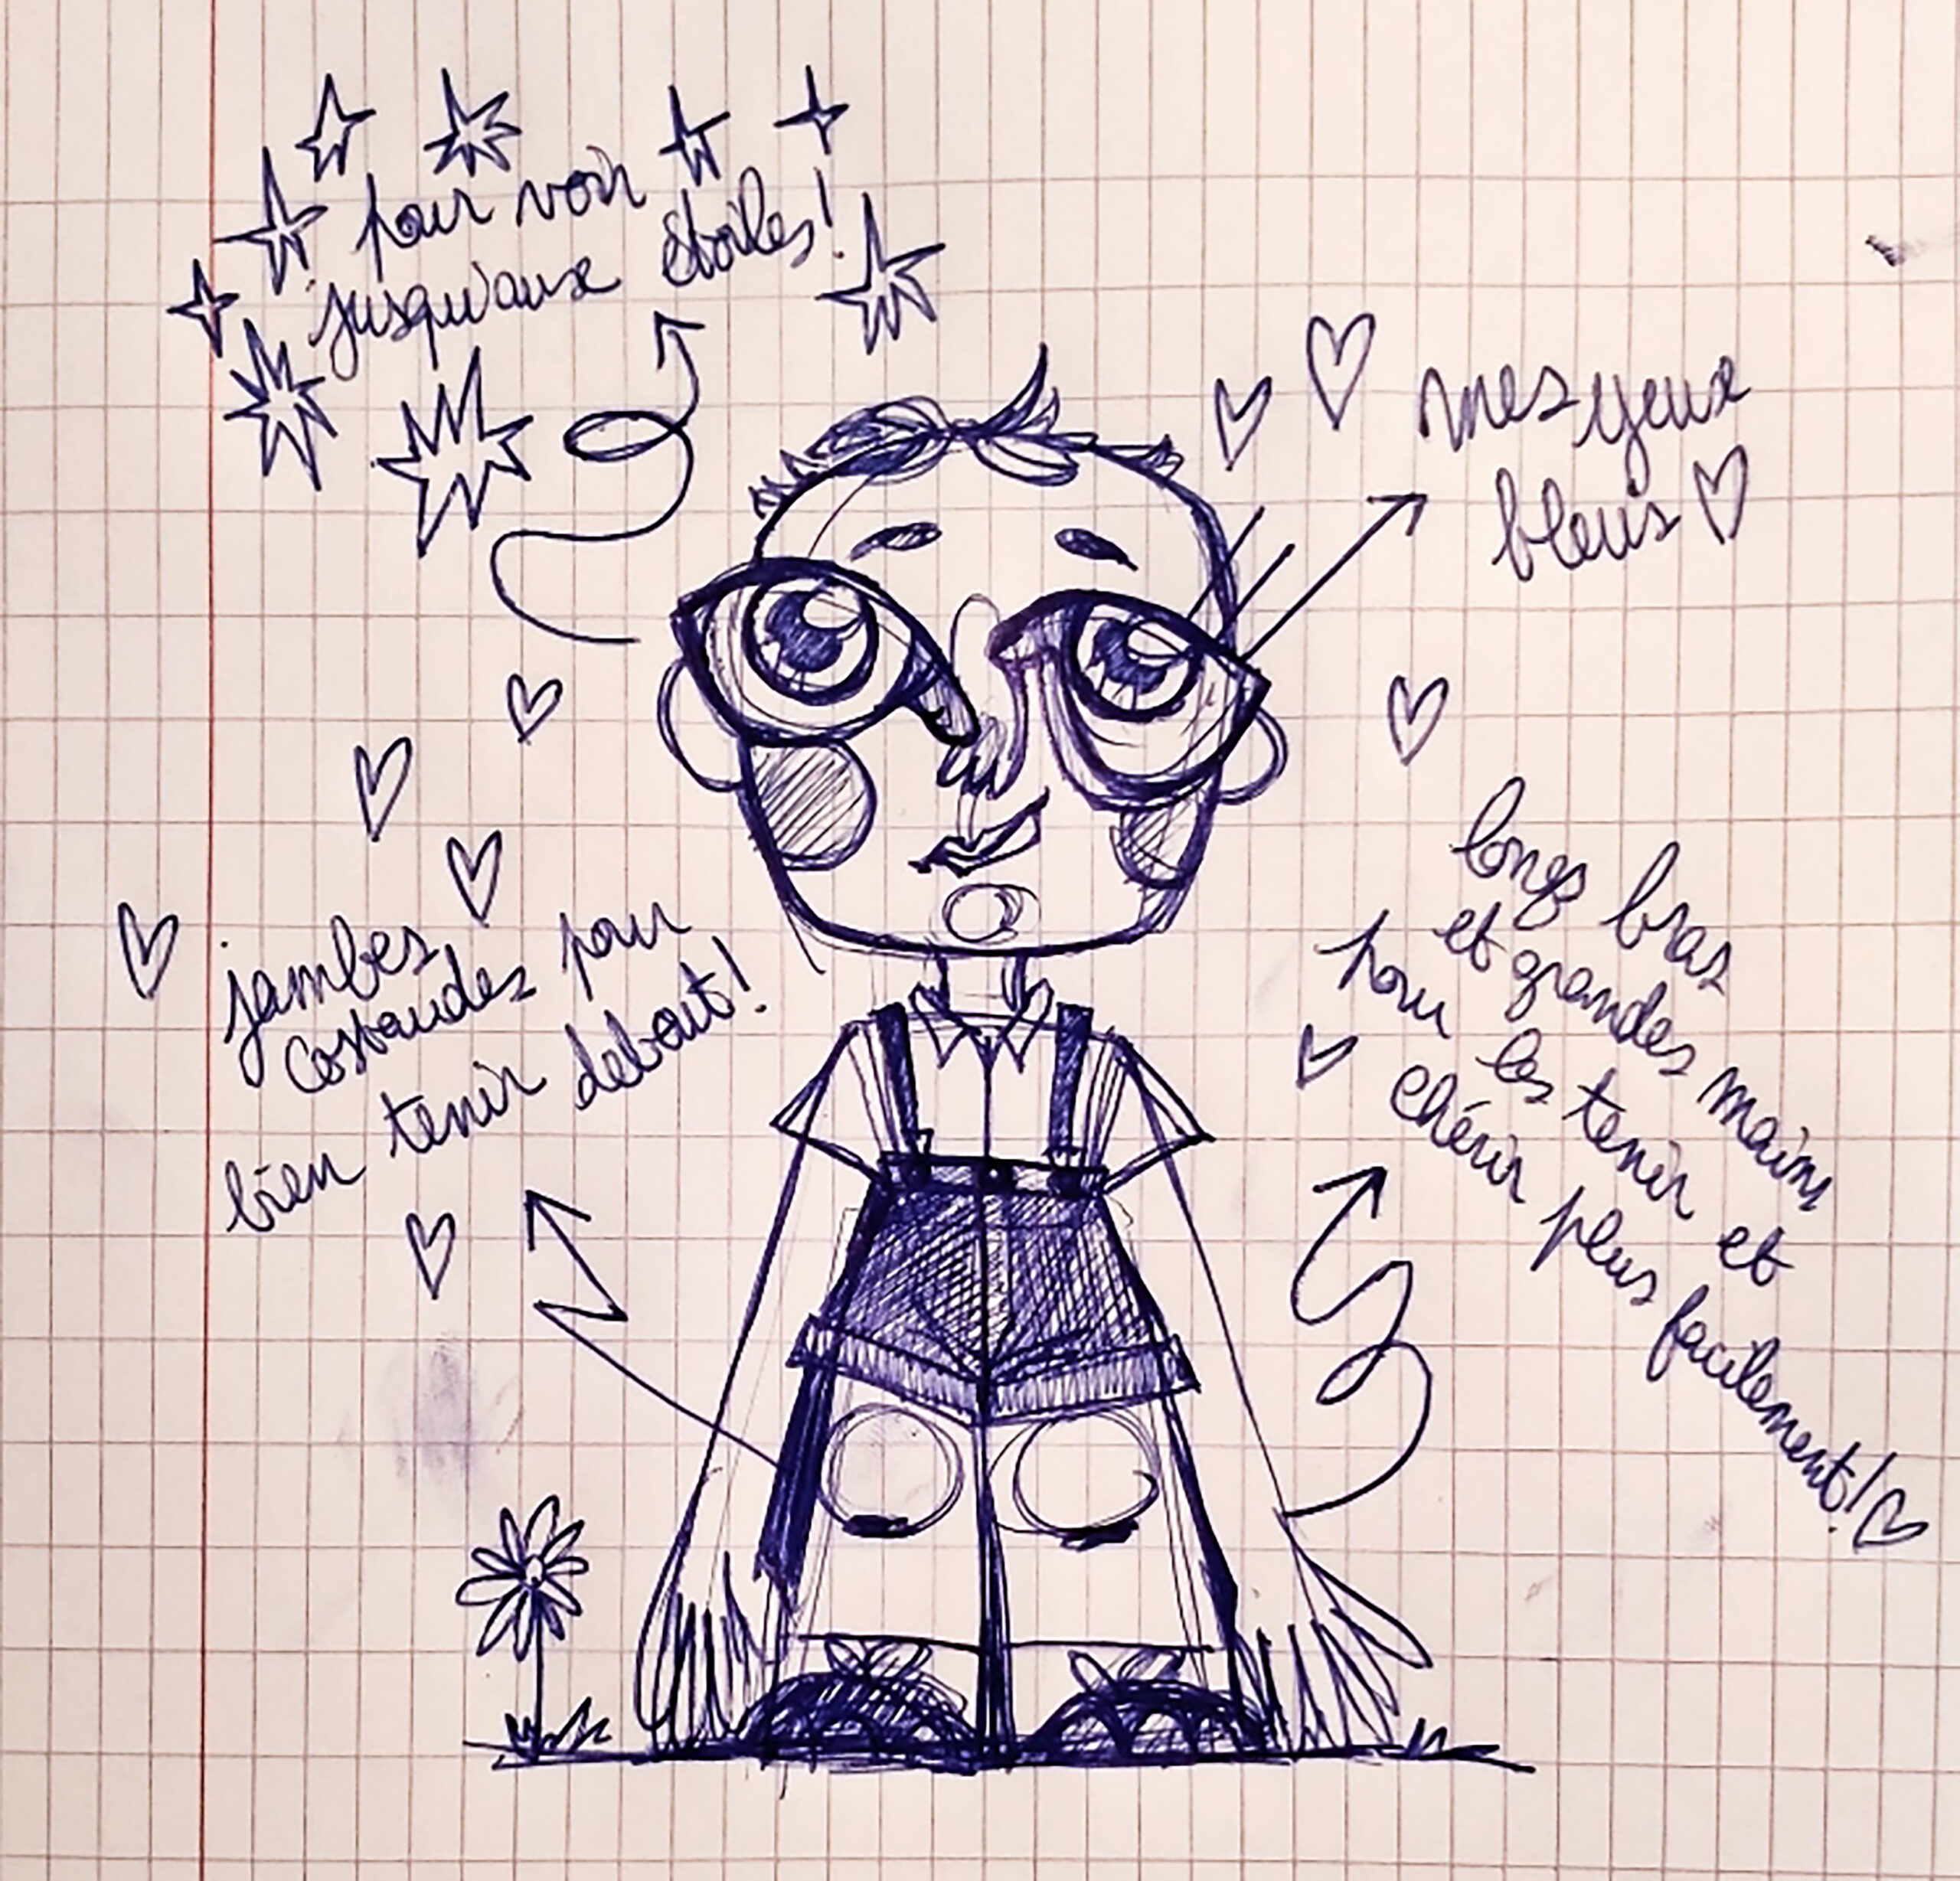 pour voir
jusqu'aux étoiles!
mes yeux
bleus
jambes
costaudes pour
bien tenir debout!
longs bras
et grandes mains
pour les tenir et
chérir plus facilement!